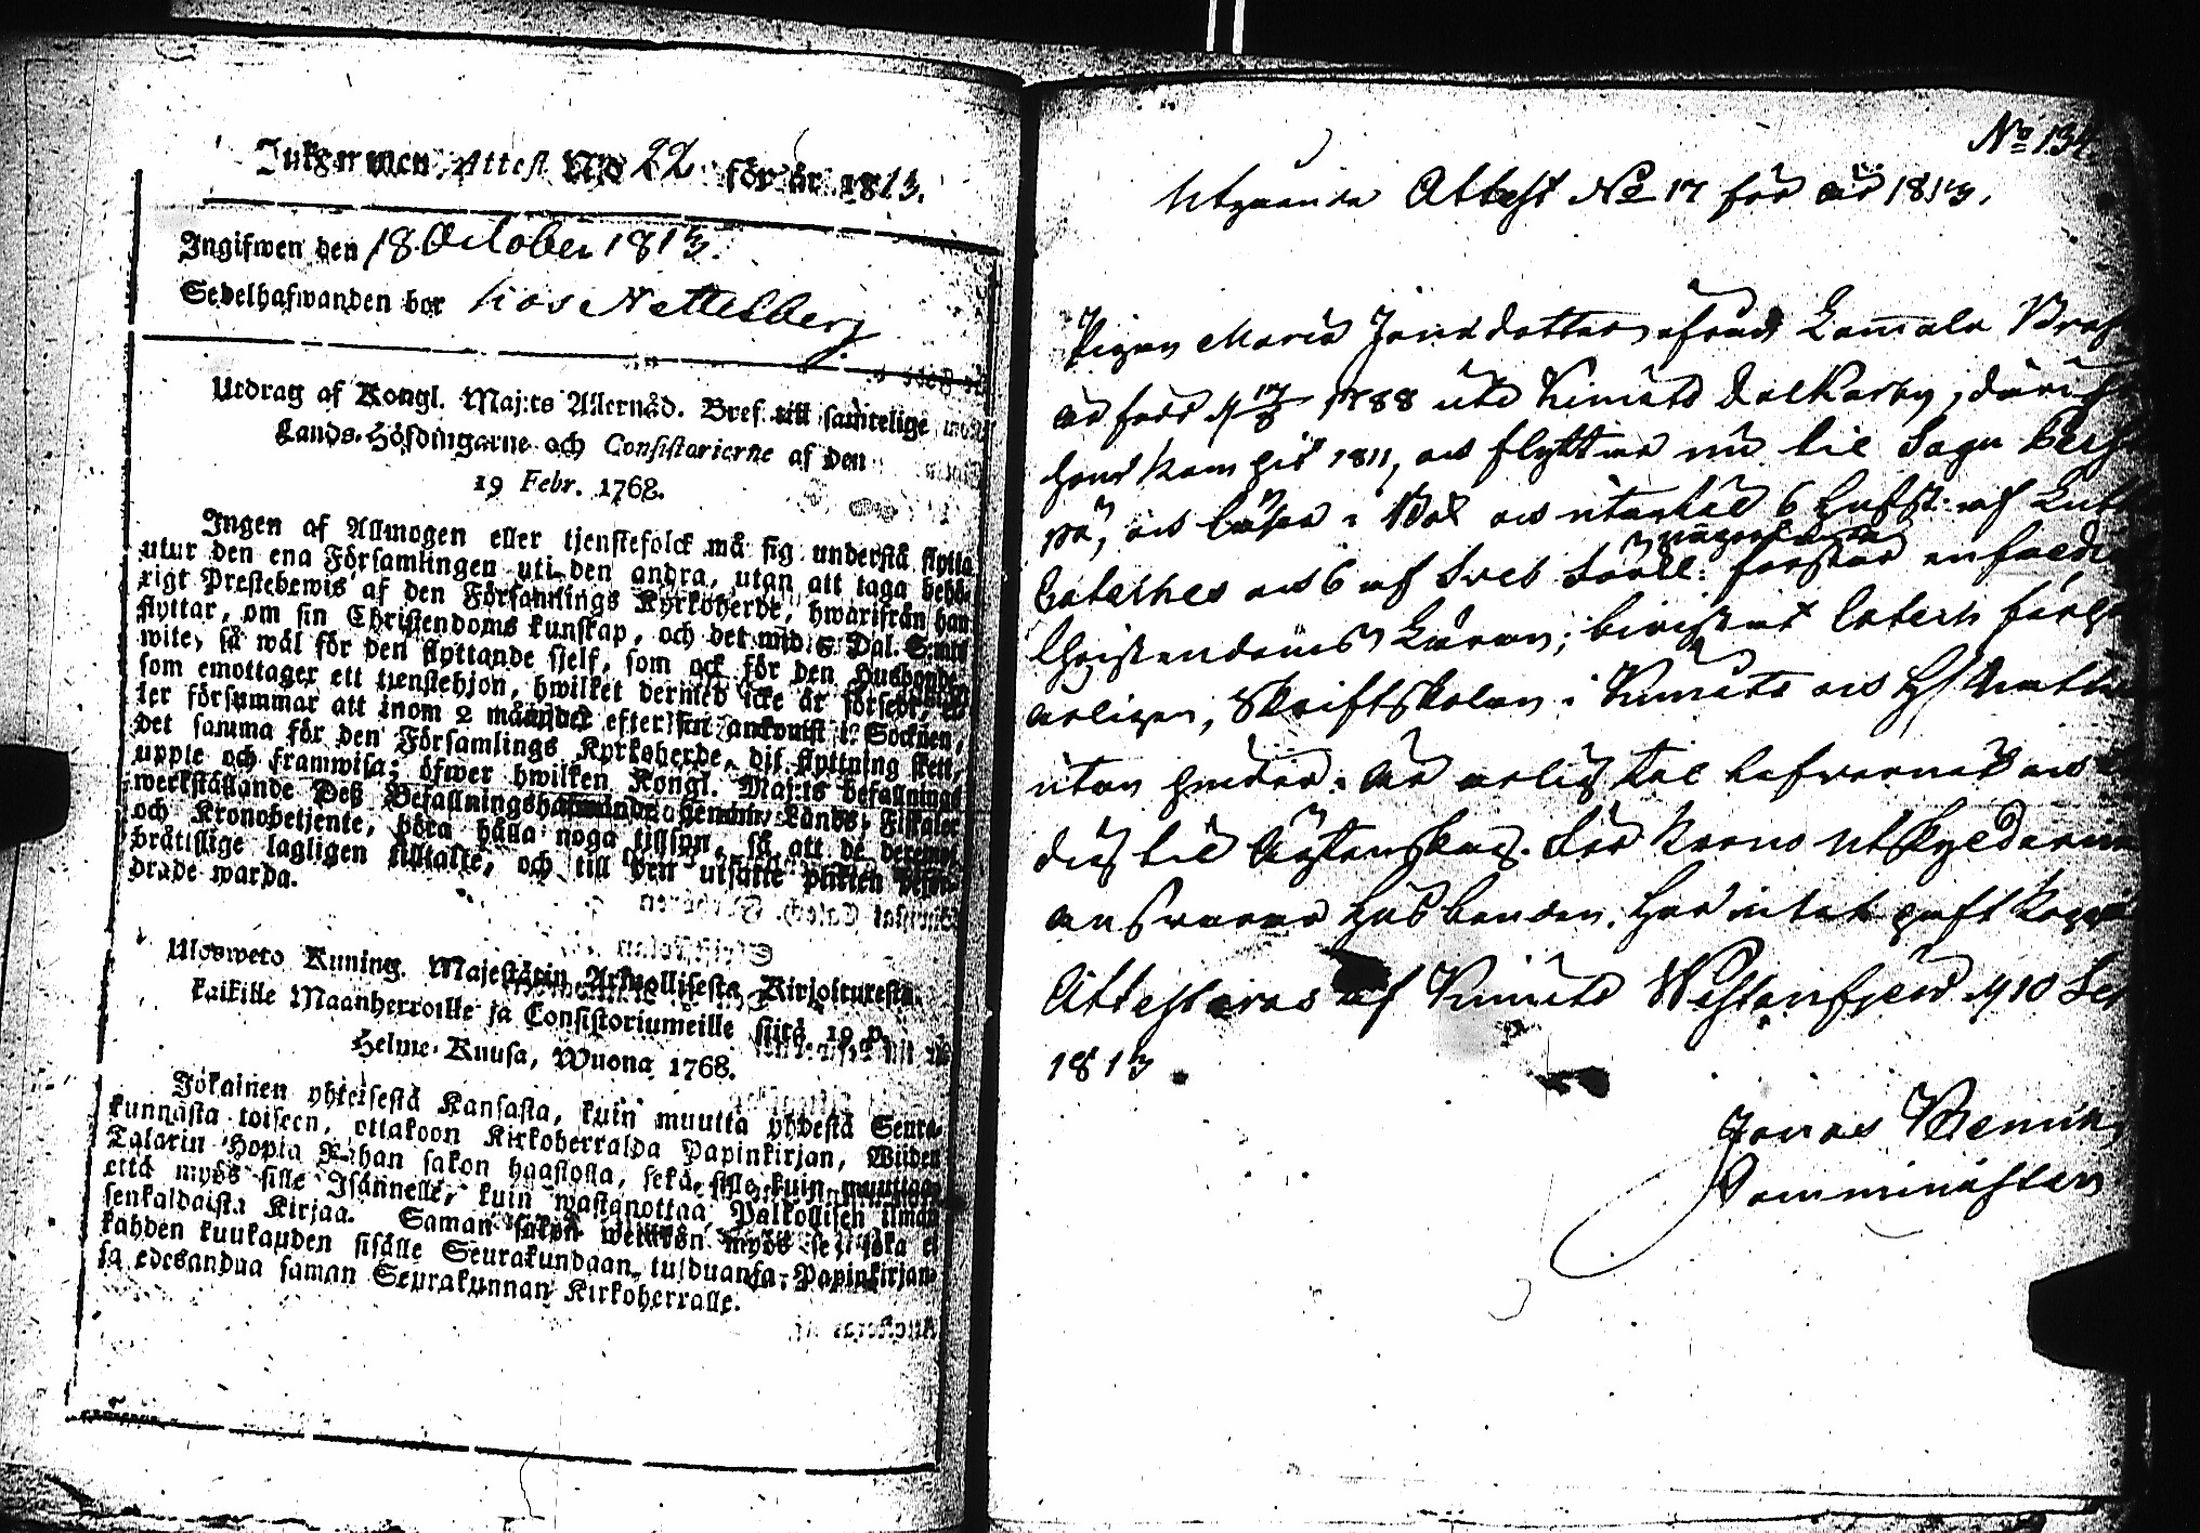 Inkommen Attest No 22 för år 1813.
Ingifwen den 18 October 1813.
Sedelhafwanden bor hos Nettelberg
Utdrag af Kongl. Maj:ts Allernåd. Bref till samtelige
Lands-Höfdingarne och Consistorierne af den
19 Febr. 1768.
Ingen af Allmogen eller tjenstefolck må sig understå flytta
utur den ena Församlingen uti den andra, utan att taga behö-
rigt Prestebewis af den Församlings Kyrkoherde, hwarifrån han
flyttar, om sin Christendoms kunskap, och det wid 5 Dal. S:mts
wite, så wäl för den flyttande sjelf, som ock för den Husbonde,
som emottager ett tjenstehjon, hwilket dermed icke är försedt, el-
ler försummar att inom 2 månader efter sin ankomst i Socknen,
det samma för den Församlings Kyrkoherde, dit flyttning skett,
uppte och framwisa; öfwer hwilken Kongl. Maj:ts befallnings
werkställande Deß Befallningshafwande genom Lands-Fiskaler
och Kronobetjente, böra hålla noga tillsyn, så att de deremot
bråttslige lagligen tilltalte, och till den utsatte plikten
drade warda.
Ulosweto Kuning. Majestätin Armollisesta Kirjoituresta
kaikille Maanherroille ja Consistoriumeille siitä 19 p.
Helme-Kuusa, Wuona 1768.
Jokainen yhteisestä Kansasta, kuin muutta yhdestä Seura-
kunnasta toiseen, ottakoon Kirkoherralda Papinkirjan, Wiiden
Talarin Hopia Rahan sakon haastolla, sekä sille kuin muuttaa
että myös sille Isännelle, kuin wastanottaa Palkollisen ilman
senkaldaista Kirjaa. Saman sakon wetäkön myös se joka ei
kahden kuukauden sisälle Seurakundaan tulduansa, Papinkirjan-
sa edesandua saman Seurakunnan Kirkoherralle.
No 134.
Utgående Attest No 17 för år 1813.
Pigan Maria Jonsdotter ifrån Lammala
är född d 17/8 1788 uti Kimito Dalkarby, därifrån
hon kom hit 1811, och flyttar nu til Sagu
på, och läser i Bok och utantil 6 Hufst: af Luth
Catethes och 6 af Sveb något
förstår enfaldi
Christendoms Läran; bivistat Catech förhör
årligen, Skriftskolan i Kimito och H H Natt
utan hinder. Är ärlig til lefvernet och
dig til Ägtenskap. För Krono Utskylderne
answarar Husbonden. Har intet haft Kopp
Attesteras af Kimito Westanfjerd d 10
1813
Jonas
Comminister